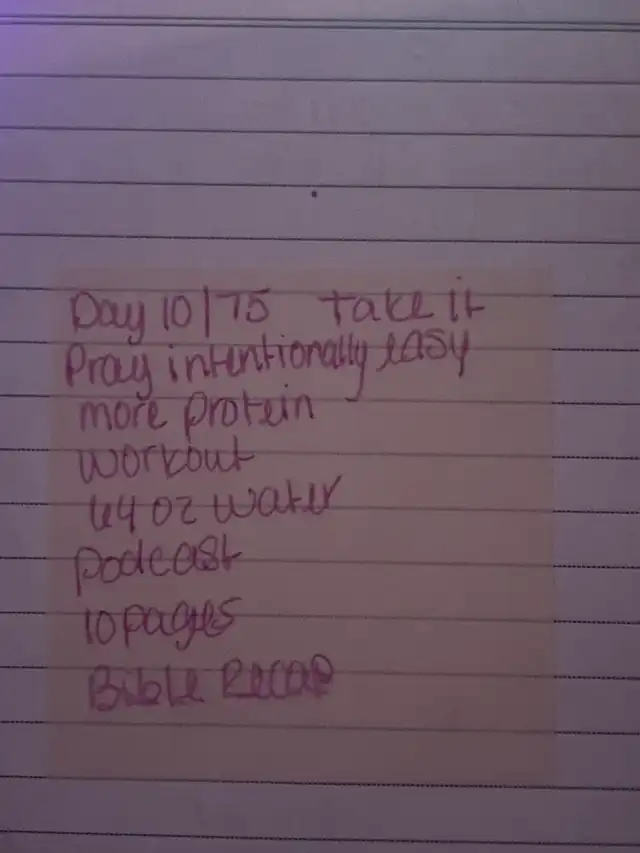 Day 10/75 take it
Pray intentionally easy
more protein
workout
64 oz water
podcast
10 pages
Bible Recap